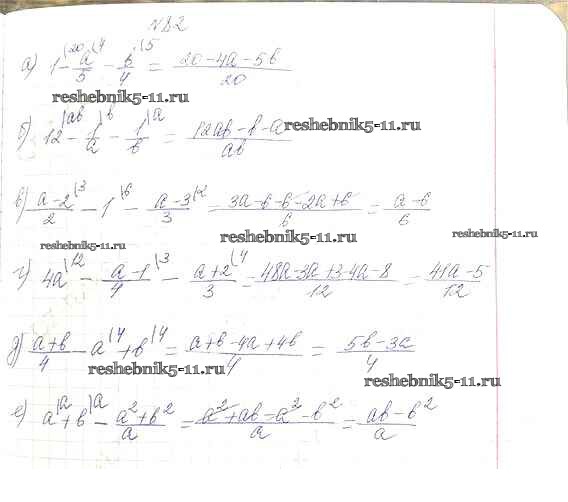 №82
а) 1^{\20} - a/5^{\4} - b/4^{\5} = (20-4a-5b)/20
reshebnik5-11.ru
б) 12^{\ab} - 1/a^{\b} - 1/b^{\a} = (12ab-b-a)/ab
reshebnik5-11.ru
reshebnik5-11.ru
в) (a-2)/2^{\3} - 1^{\6} - (a-3)/3^{\2} = (3a-6-6-2a+6)/6 = (a-6)/6
reshebnik5-11.ru
reshebnik5-11.ru
reshebnik5-11.ru
г) 4a^{\12} - (a-1)/4^{\3} - (a+2)/3^{\4} = (48a-3a+3-4a-8)/12 = (41a-5)/12
д) (a+b)/4 - a^{\4} + b^{\4} = (a+b-4a+4b)/4 = (5b-3a)/4
reshebnik5-11.ru
reshebnik5-11.ru
е) a^{\a} + b^{\a} - (a²+b²)/a = (a²+ab-a²-b²)/a = (ab-b²)/a